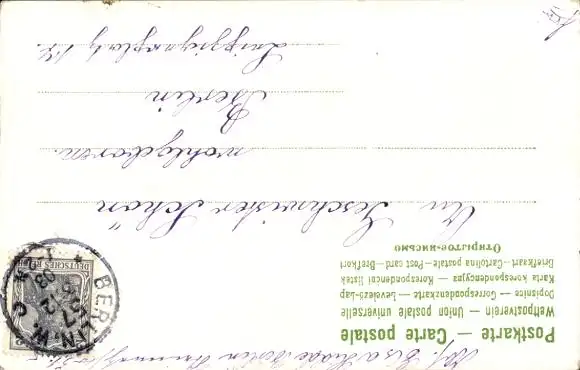 Postkarte — Carte postale
Weltpostverein — Union postale universelle
Dopisnice — Correspondenzkarte — Levelező-Lap
Karta korespondencyjna — Korespondenčni listek
Briefkaart — Cartolina postale — Post card — Brefkort
Открытое письмо
An Geschwister Schön
wohlgeboren
Berlin
Leipzigerplatz
DEUTSCHES REICH
BERLIN W.